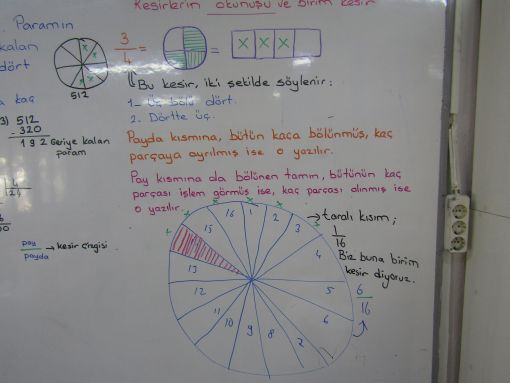 Kesirlerin okunuşu ve birim kesir
Paramın
kalan
dört
kaç
512
3) 512
- 320
192 Geriye kalan
param
pay
payda → kesir çizgisi
3/4 = =
Bu kesir, iki şekilde söylenir:
1- Üç bölü dört.
2. Dörtte üç.
Payda kısmına, bütün kaça bölünmüş, kaç
parçaya ayrılmış ise o yazılır.
Pay kısmına da bölünen tamın, bütünün kaç
parçası işlem görmüş ise, kaç parçası alınmış ise
o yazılır.
taralı kısım;
1/16
Biz buna birim
kesir diyoruz.
6/16
1
2
3
4
5
6
7
8
9
10
11
12
13
15
16